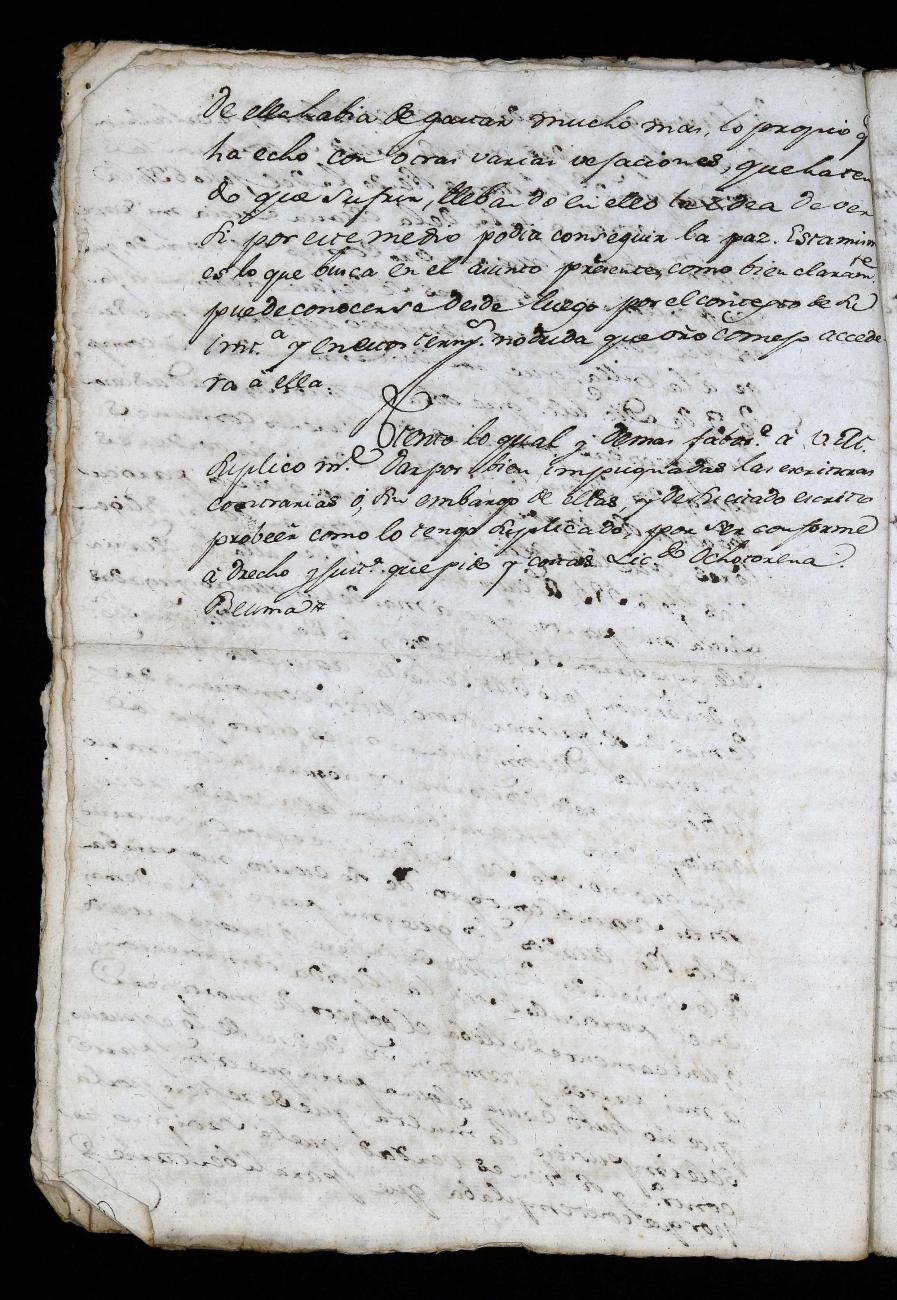 de ella habia de gastar mucho mas, lo propio q̃
ha echo con otras varias vejaciones, que ha teni
do que sufrir, llebando en ello la idea de ver
si por este medio podia conseguir la paz. Esta mism
es lo que busca en el asunto presente, como bien claramte
puede conocerse desde luego por el contexto de su
inst.a y en estos termos. no duda que vro Consejo accede
ra à ella.
Atento lo qual y demas fabor.e à V. M.
suplico m.e dar por bien impugnadas las escrituras
contrarias ò, sin embargo de ellas, y de su citado escrito
probeer como lo tengo suplicado, por ser conforme
à drecho y just.a que pido y costas Lic.do Ochotorena.
Beuma